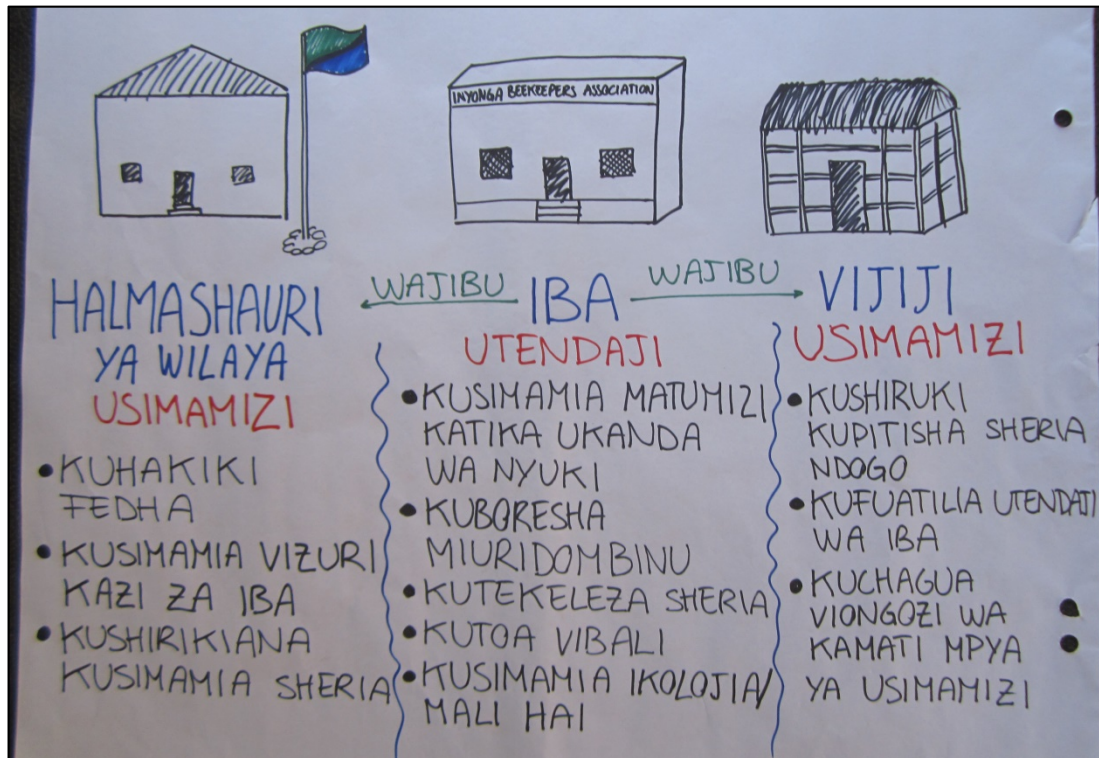 INYONGA BEEKEEPERS ASSOCIATION
HALMASHAURI
YA WILAYA
USIMAMIZI
• KUHAKIKI
FEDHA
• KUSIMAMIA VIZURI
KAZI ZA IBA
• KUSHIRIKIANA
KUSIMAMIA SHERIA
WAJIBU
IBA
WAJIBU
UTENDAJI
• KUSIMAMIA MATUMIZI
KATIKA UKANDA
WA NYUKI
• KUBORESHA
MIURIDOMBINU
• KUTEKELEZA SHERIA
• KUTOA VIBALI
• KUSIMAMIA IKOLOJIA/
MALI HAI
VIJIJI
USIMAMIZI
• KUSHIRUKI
KUPITISHA SHERIA
NDOGO
• KUFUATILIA UTENDAJI
WA IBA
• KUCHAGUA
VIONGOZI WA
KAMATI MPYA
YA USIMAMIZI